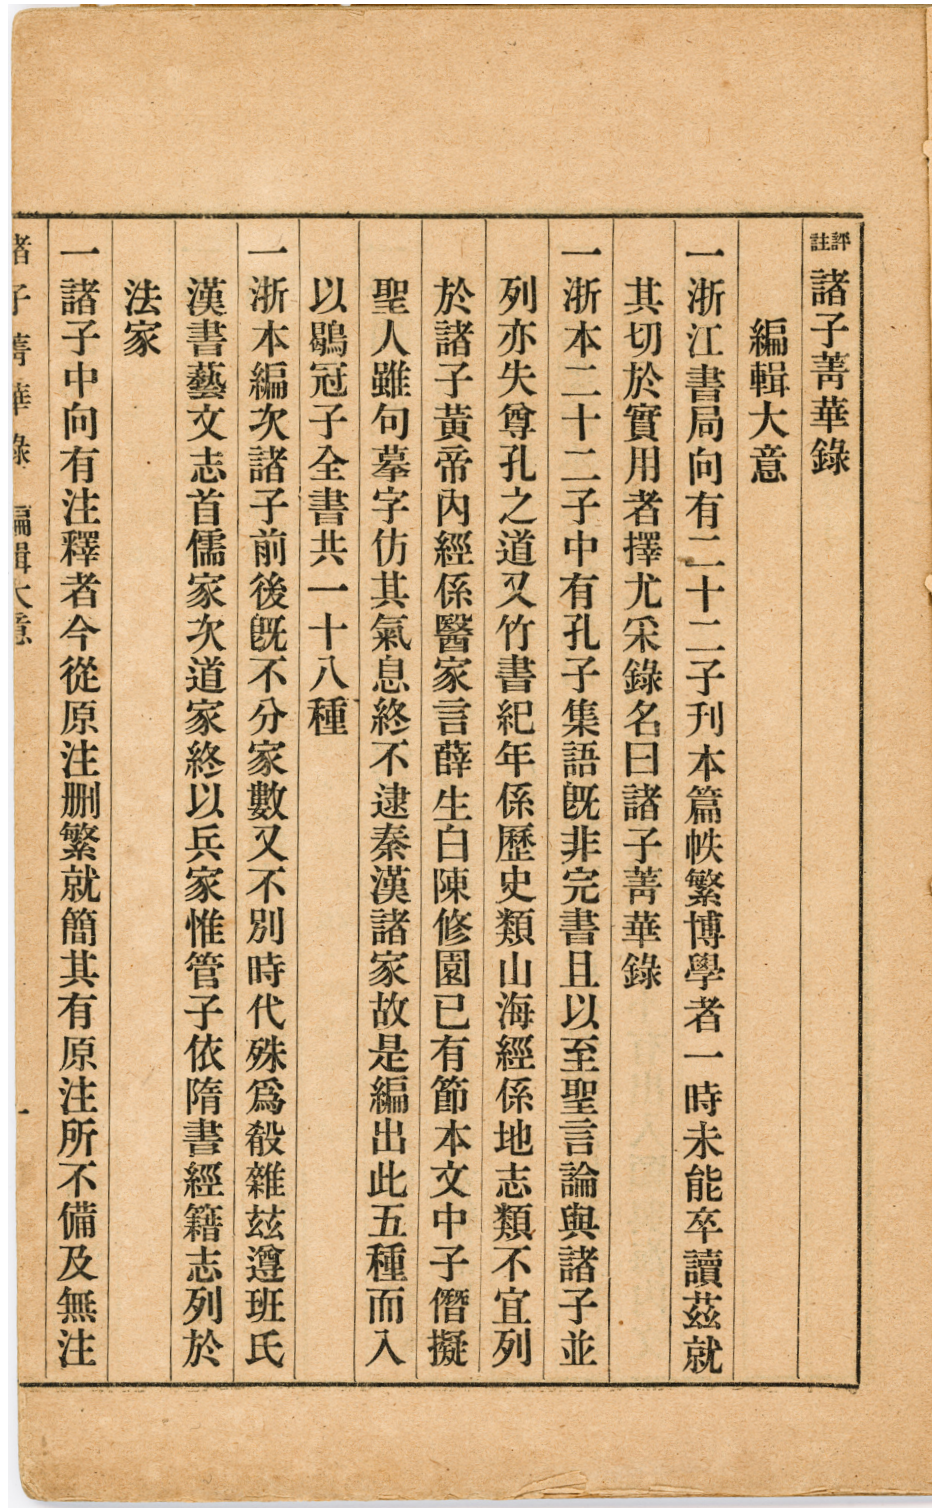 評註諸子菁華錄
編輯大意
一浙江書局向有二十二子刊本篇帙繁博學者一時未能卒讀茲就
其切於實用者擇尤采錄名曰諸子菁華錄
一浙本二十二子中有孔子集語旣非完書且以至聖言論與諸子並
列亦失尊孔之道又竹書紀年係歷史類山海經係地志類不宜列
於諸子黃帝內經係醫家言薛生白陳修園已有節本文中子僭擬
聖人雖句摹字仿其氣息終不逮秦漢諸家故是編出此五種而入
以鶡冠子全書共一十八種
一浙本編次諸子前後旣不分家數又不別時代殊爲殽雜玆遵班氏
漢書藝文志首儒家次道家終以兵家惟管子依隋書經籍志列於
法家
一諸子中向有注釋者今從原注删繁就簡其有原注所不備及無注
諸子菁華錄 編輯大意 一